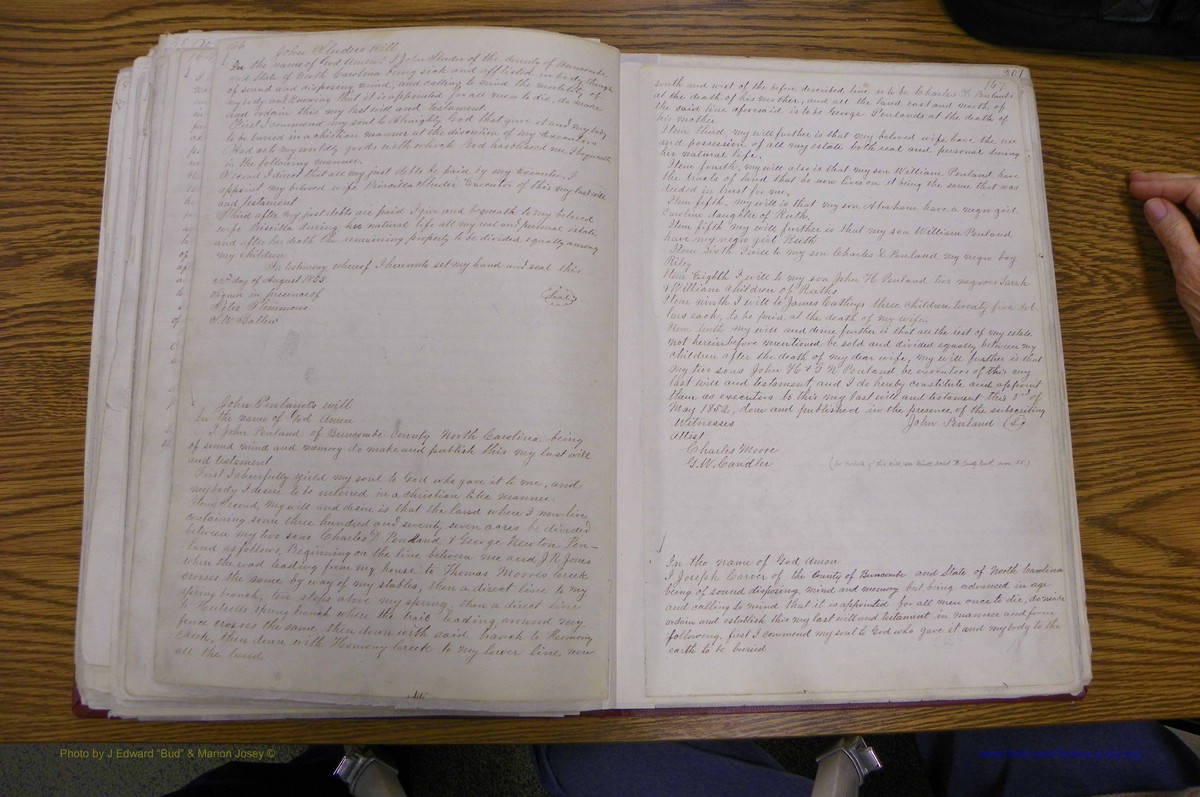 166
John Sluders will
In the name of God Amen. I John Sluder of the County of Buncombe
and State of North Carolina being sick and afflicted in body though
of sound and disposing mind, and calling to mind the mortality of
my body and knowing that it is appointed for all men to die, do make
and ordain this my last will and testament.
First I commend my soul to Almighty God that gave it and my body
to be buried in a christian manner at the discretion of my Executors
And as to my worldly goods with which God has blessed me I bequeath
in the following manner.
Second I direct that all my just debts be paid by my Executor. I
appoint my beloved wife Priscilla Sluder Executor of this my last will
and testament
Third after my just debts are paid I give and bequeath to my beloved
wife Priscilla during her natural life all my real and personal estate
and after her death the remaining property to be divided equally among
my children
In testimony whereof I hereunto set my hand and seal this
22nd day of August 1855
Signed in presence of
(Seal)
Plemmons
John Penland's will
In the name of God Amen
I John Penland of Buncombe County North Carolina being
of sound mind and memory do make and publish this my last will
and testament
First I cheerfully yield my soul to God who gave it to me, and
my body I desire to be interred in a christian like manner.
Item Second, my will and desire is that the land where I now live
containing some three hundred and seventy seven acres be divided
between my two sons Charles L Penland & George Newton Pen-
land as follows, Beginning on the line between me and J. R. Jones
where the road leading from my house to Thomas Moores Creek
crosses the same by way of my stables, then a direct line to my
spring branch, ten steps above my spring, then a direct line
to spring branch where the trail leading around my
fence crosses the same, then down with said branch to Hominy
Creek, then down with Hominy Creek to my lower line, now
all the land
301
167
south and west of the before described line, is to be Charles L Penlands
at the death of his mother, and all the land east and north of
the said line aforesaid is to be George Penlands at the death of
his mother
Item third, my will further is that my beloved wife have the use
and possession of all my estate both real and personal during
her natural life.
Item fourth, my will also is that my son William Penland have
the tracts of land that he now lives on it being the same that was
deeded in trust for me,
Item fifth, my will is that my son Abraham have a negro girl
Caroline daughter of Ruth,
Item fifth my will further is that my son William Penland
have my negro girl Ruth
Item Sixth I will to my son Charles L Penland, my negro boy
Riley
Item Eighth I will to my son John H Penland two negroes Sarah
& William children of Ruths
Item ninth I will to James Cathings three children twenty five dol-
lars each, to be paid at the death of my wife,
Item tenth my will and desire further is that all the rest of my estate
not hereinbefore mentioned be sold and divided equally between my
children after the death of my dear wife, my will further is that
my two sons John H & G N Penland be executors of this my
last will and testament, and I do hereby constitute and appoint
them as executors to this my last will and testament this 3rd of
May 1852, done and published in the presence of the subscribing
Witnesses
John Penland (S)
Attest
Charles Moore
G. W. Candler
In the name of God Amen
I Joseph Carver of the County of Buncombe and State of North Carolina
being of sound disposing mind and memory but being advanced in age
and calling to mind that it is appointed for all men once to die, do make
ordain and establish this my last will and testament in manner and form
following, first I commend my soul to God who gave it and my body to the
earth to be buried
Photo by J Edward "Bud" & Marion Josey ©